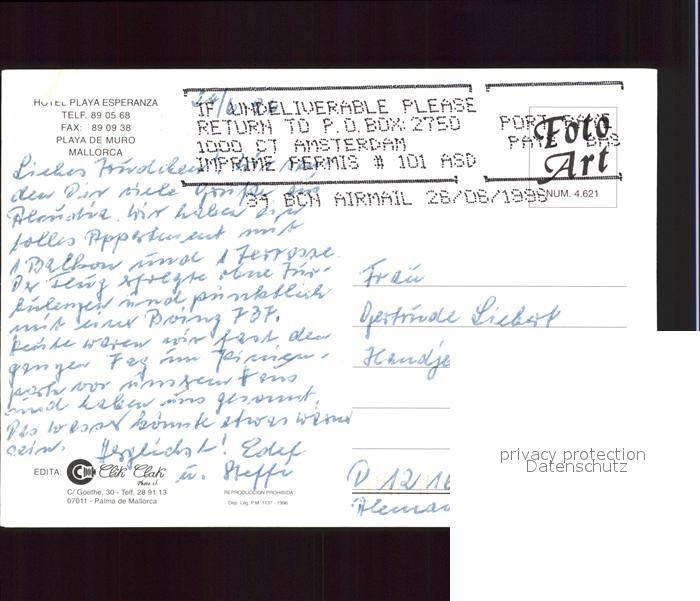 HOTEL PLAYA ESPERANZA
TELF. 89 05 68
FAX: 89 09 38
PLAYA DE MURO
MALLORCA
IF UNDELIVERABLE PLEASE
RETURN TO P.O.BOX:2750
1000 CT AMSTERDAM
IMPRIME PERMIS # 101 ASD
34 BCN AIRMAIL 26/06/1998
PORT BETAALD
Foto
Art
NUM. 4.621
Liebes
den Dir viele Grüße aus
Alcudia. Wir haben ein
tolles Appartement mit
1 Balkon und 1 Terrasse.
Der Flug erfolgte ohne Tur-
bulenzen und pünktlich
mit einer Boing 737.
Heute waren wir fast den
ganzen Tag im Pinien-
park vor unserem Haus
und haben uns gesonnt.
Das Wasser könnte etwas wärmer
sein. Herzlichst! Edel
u. Steffi
Frau
Gertrude Liebert
Handje
D 12 16
Aleman
EDITA:
Clik Clak
C/ Goethe, 30 - Telf. 28 91 13
07011 - Palma de Mallorca
REPRODUCCION PROHIBIDA
Dep. Leg. P.M. 1137 - 1996
privacy protection
Datenschutz